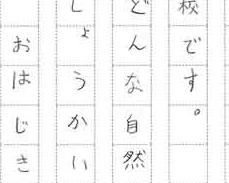 校です。
どんな自然
しょうかい
おはじき